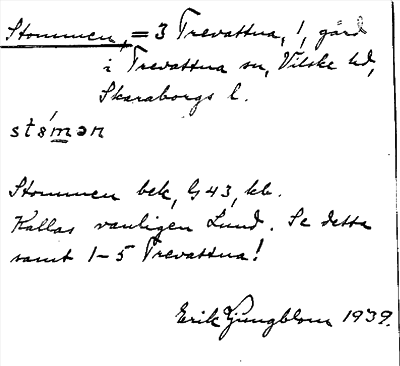 Stommen, = 3 Trevattna, 1, gård
i Trevattna sn, Vilske hd,
Skaraborgs l.
stómən
Stommen bek, G 43, kb.
Kallas vanligen Lund. Se detta
samt 1-5 Trevattna!
Erik Ljungblom 1939.